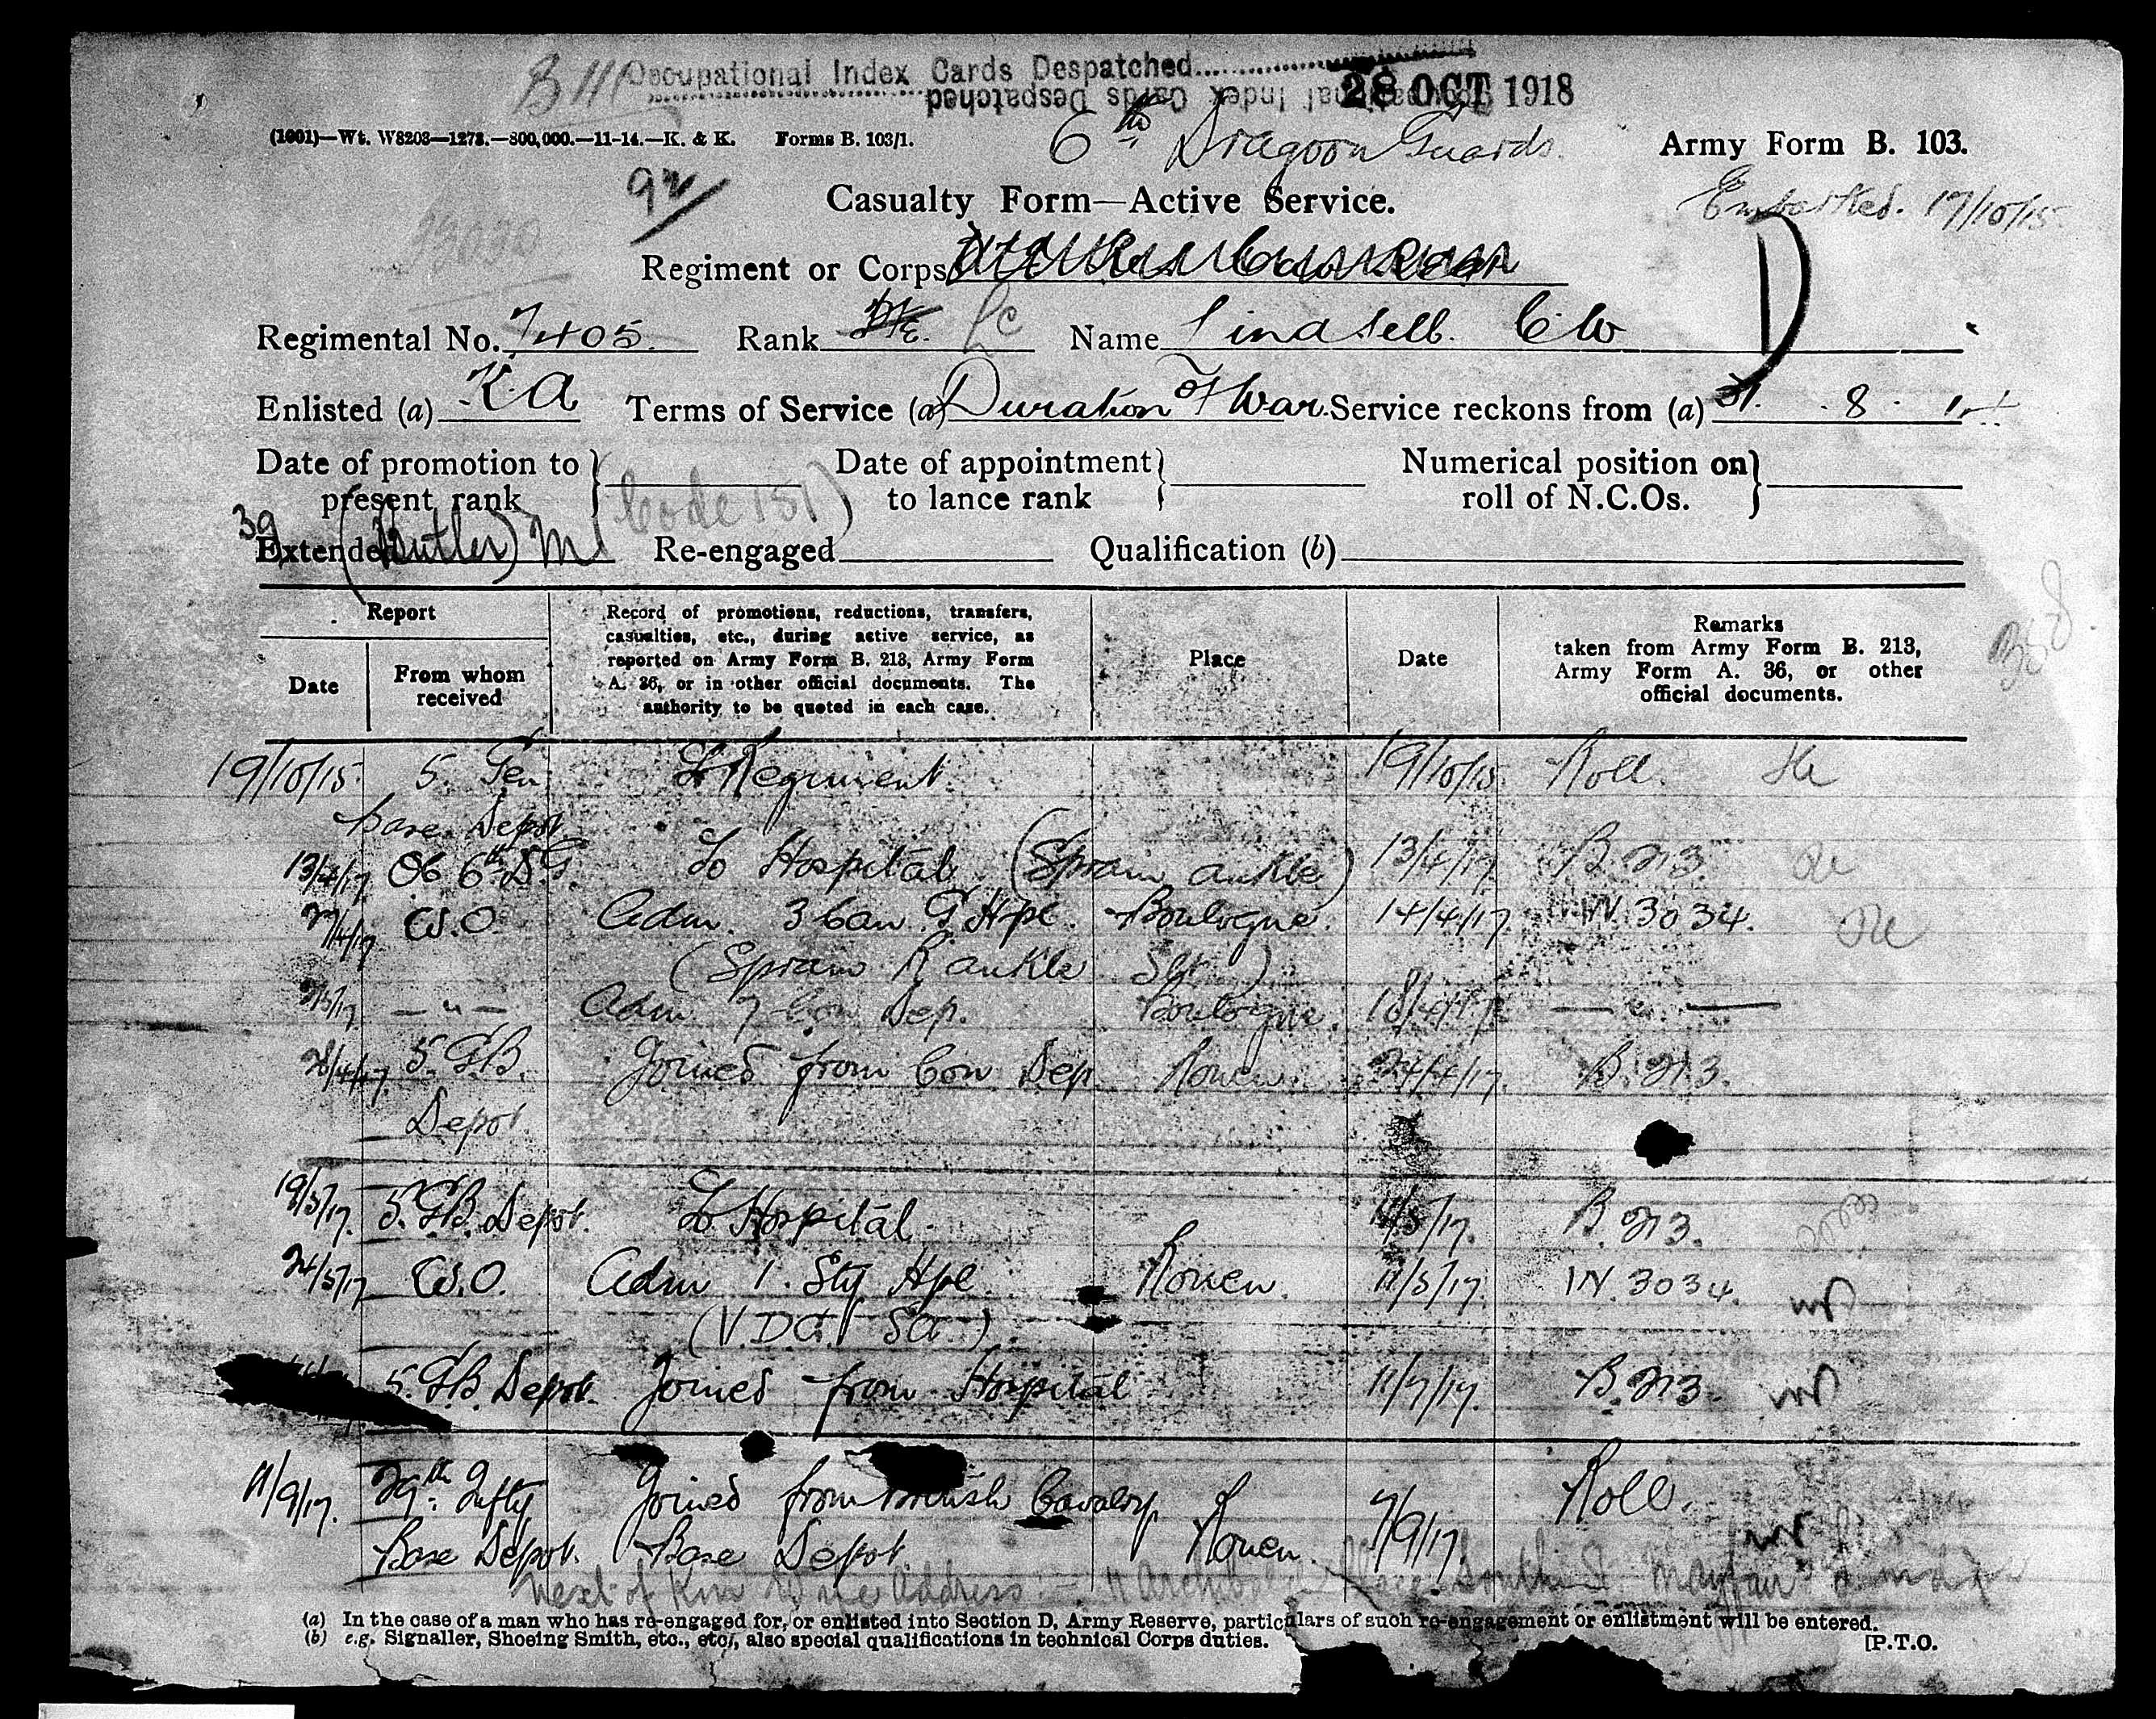 Occupational Index Cards Despatched
Occupational Index Cards Despatched
28 OCT 1918
(1601)—Wt. W8203—1273.—800,000.—11-14.—K. & K. Forms B. 103/1.
6th Dragoon Guards.
Army Form B. 103.
Embarked. 17/10/15
Casualty Form—Active Service.
Regiment or Corps
Regimental No. 7405. Rank Pte. Lc Name Lindsell. C W
D
Enlisted (a) K.A Terms of Service (a) Duration of War. Service reckons from (a) 31. 8.
Date of promotion to present rank
Date of appointment to lance rank
Numerical position on roll of N.C.Os.
39 (Butler) M (Code 151)
Extended Re-engaged Qualification (b)
Report
Date
From whom received
Record of promotions, reductions, transfers, casualties, etc., during active service, as reported on Army Form B. 213, Army Form A. 36, or in other official documents. The authority to be quoted in each case.
Place
Date
Remarks taken from Army Form B. 213, Army Form A. 36, or other official documents.
19/10/15 5. Gen To Regiment 19/10/15 Roll.
Base Depot
13/4/17 OC 6th D.G. To Hospital (Sprain ankle) 13/4/17 B.213.
C.O. Adm. 3 Can. G. Hpl. Boulogne. 14/4/17. W. 3034.
(Sprain R ankle Slt)
—"— Adm 7 Con Dep. Boulogne. 18/4/17 — " —
28/4/17 5. G.B. Joined from Con Dep Rouen. 24/4/17. B. 213.
Depot
19/5/17. 5. G.B. Depot. To Hospital. 11/5/17. B. 213.
24/5/17 C.O. Adm 1. Sty Hpl Rouen. 11/5/17. W. 3034.
5. G.B. Depot. Joined from Hospital 11/7/17. B. 213.
11/9/17. 29th Infty Joined from British Cavalry Rouen. 7/9/17. Roll.
Base Depot. Base Depot.
Next of Kin Address 11 South St. Mayfair London
(a) In the case of a man who has re-engaged for, or enlisted into Section D, Army Reserve, particulars of such re-engagement or enlistment will be entered.
(b) e.g. Signaller, Shoeing Smith, etc., etc., also special qualifications in technical Corps duties.
[P.T.O.